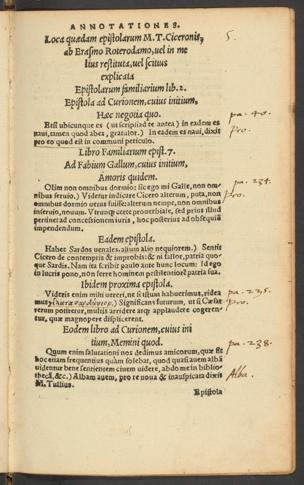 ANNOTATIONES.
5.
Loca quædam epistolarum M. T. Ciceronis,
ab Erasmo Roterodamo, uel in me
lius restituta, uel scitius
explicata
Epistolarum familiarium lib. 2.
Epistola ad Curionem, cuius initium,
Hæc negotia quo.
pa. 40.
Etsi ubicunque es (ut scripsi ad te antea) in eadem es
naui, tamen quod abes, gratulor.) In eadem es naui, dixit
pro.
pro eo quod est in communi periculo.
Libro Familiarum epist. 7.
Ad Fabium Gallum, cuius initium,
Amoris quidem.
pa. 234.
Olim non omnibus dormio: sic ego mi Galle, non om-
nibus seruio.) Videtur indicare Cicero alterum, puta, non
pro.
omnibus dormio uerus fuisse alterum nempe, non omnibus
inseruio, nouum. Vtrunque certe prouerbiale, sed prius illud
pertinet ad concessionem iuris, hoc posterius ad obsequii
impendendum.
Eadem epistola.
Habes Sardos uenales, alium alio nequiorem.) Sentit
Cicero de contemptis & improbis: & ni fallor, patria quo-
que Sardis. Nam ita scribit paulo ante hunc locum: Id ego
in lucris pono, non ferre hominem pestilentiorem patria sua.
Ibidem proxima epistola.
pa. 235.
Videris enim mihi uereri, ne si istum habuerimus, ridea-
mus
Significans futurum, ut si Cæsar
pro.
rerum potiretur, multis arridere atque applaudere cogeren-
tur, quæ magnopere displicerent.
Eodem libro ad Curionem, cuius ini
tium, Memini quod.
pa. 238.
Quum enim salutationi nos dedimus amicorum, quæ fit
hoc etiam frequentius quàm solebat, quod quasi auem albā
uidentur bene sentientem ciuem uidere, abdo me in biblio-
Alba.
thecā, &c.) Albam auem, pro re noua & inauspicata dixit
M. Tullius.
Epistola